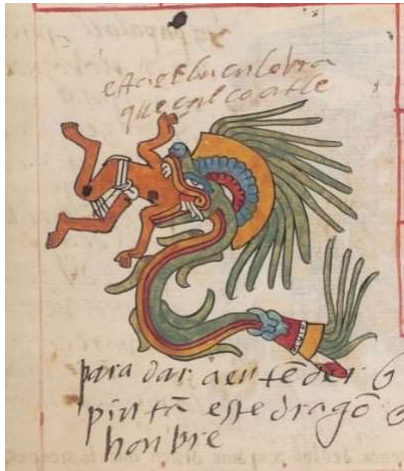 esta es la culebra
queçalcoatle
para dar a entēder
pintā este dragō
honbre